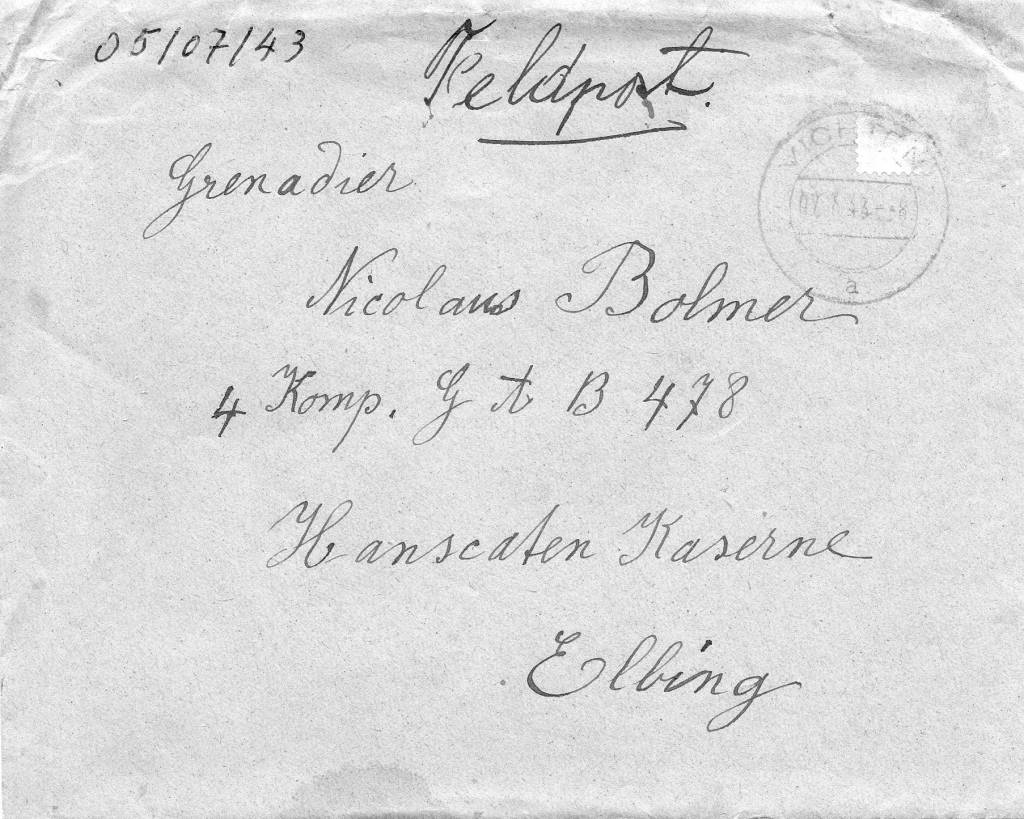 05/07/43
Feldpost.
Grenadier
Nicolaus Bolmer
4 Komp. G A B 478
Hanseaten Kaserne
Elbing
a